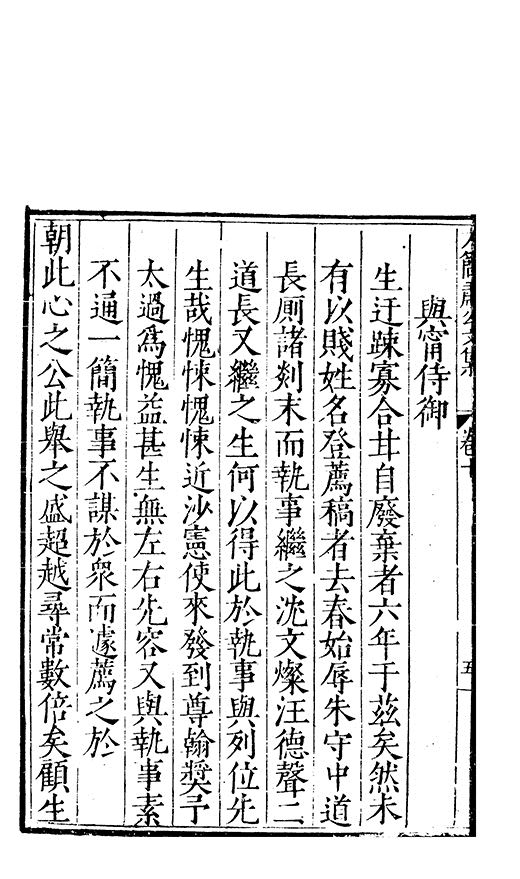 簡肅公文集 卷十 五
與甯侍御
生迂踈寡合甘自廢棄者六年于茲矣然未
有以賤姓名登薦稿者去春始辱朱守中道
長厠諸剡末而執事繼之沈文燦汪德聲二
道長又繼之生何以得此於執事與列位先
生哉愧悚愧悚近沙憲使來發到尊翰獎予
太過為愧益甚生無左右先容又與執事素
不通一簡執事不謀於衆而遽薦之於
朝此心之公此舉之盛超越尋常數倍矣顧生